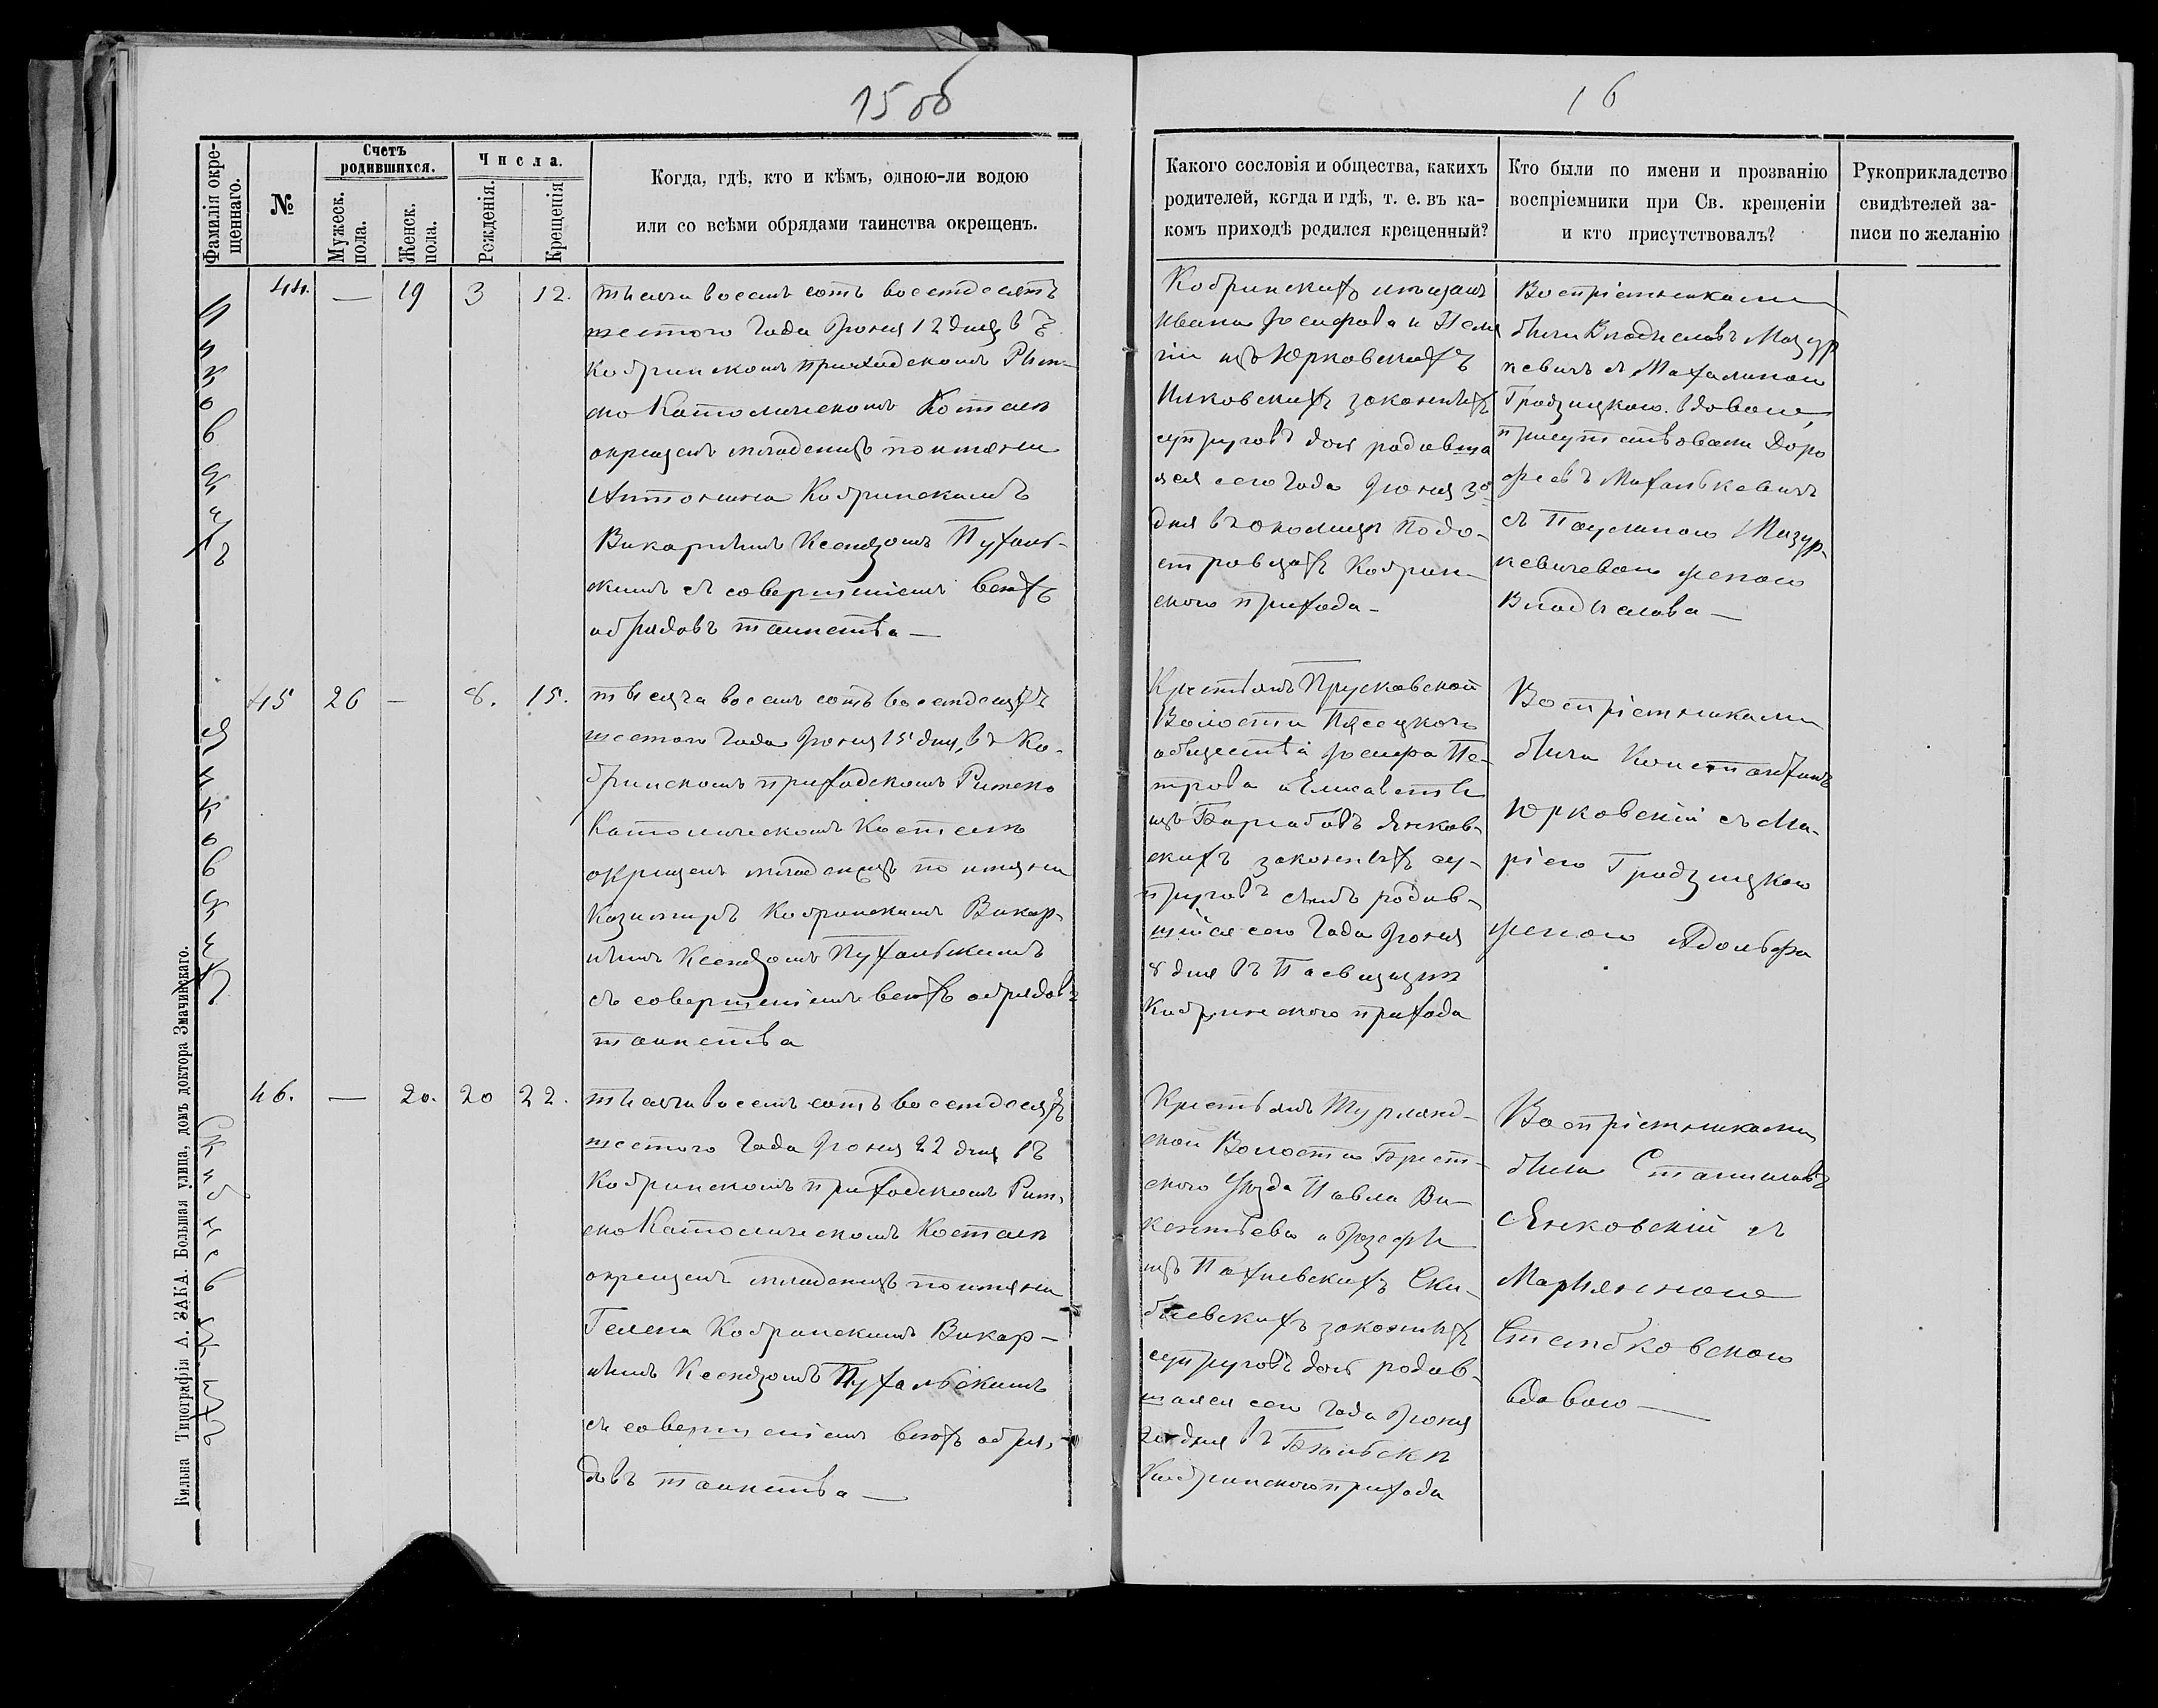 15 об
16
Фамилія окре-
щеннаго.
№
Счетъ
родившихся.
Мужеск.
пола.
Женск.
пола.
Числа.
Рожденія.
Крещенія
Когда, гдѣ, кто и кѣмъ, одною-ли водою
или со всѣми обрядами таинства окрещенъ.
Какого сословія и общества, какихъ
родителей, когда и гдѣ, т. е. въ ка-
комъ приходѣ родился крещенный?
Кто были по имени и прозванію
воспріемники при Св. крещеніи
и кто присутствовалъ?
Рукоприкладство
свидѣтелей за-
писи по желанію
44. — 19 3 12.
тысяча восемь сотъ восемдесятъ
шестого Года Іюня 12 дня въ
Кобринскомъ приходскомъ Рим-
ско Католическомъ Костелѣ
окрещенъ младенецъ по имени
Антонина Кобринскимъ
Викарнымъ Ксендзомъ Пухаль-
скимъ съ совершеніемъ всѣхъ
обрядовъ таинства —
Кобринскихъ мѣщанъ
Ивана Іосифова и
изъ Юрковскихъ
законныхъ
супруговъ дочь родивша
яся сего Года Іюня 3го
дня въ околицѣ Подо-
Кобрин-
ского прихода —
Воспріемниками
были Владиславъ Мазур
кевичъ съ Махалиною
Гродзицкою вдовою,
присутствовали Доро
фей Михалькевичъ
съ Паулиною Мазур-
кевичевою женою
Владислава —
Янковскихъ
45 26 — 8. 15.
тысяча восемь сотъ восемдесятъ
шестого Года Іюня 15 дня, въ Ко-
бринскомъ приходскомъ Римско
Католическомъ Костелѣ
окрещенъ младенецъ по имени
Казимиръ Кобринскимъ Викар-
нымъ Ксендзомъ Пухальскимъ
съ совершеніемъ всѣхъ обрядовъ
таинства
Крестьянъ Прусковской
Волости Пясецкого
общества Іосифа Пе-
трова и Елисаветы
изъ Янков-
скихъ законныхъ су-
пруговъ сынъ родив-
шійся сего Года Іюня
8 дня въ
Кобринского прихода
Воспріемниками
были Константинъ
Юрковскій съ Ма-
ріею Гродзицкою
женою Адольфа
Скибневскихъ
46. — 20. 20 22.
тысяча восемь сотъ восемдесятъ
шестого Года Іюня 22 дня въ
Кобринскомъ приходскомъ Рим-
ско Католическомъ Костелѣ
окрещенъ младенецъ по имени
Гелена Кобринскимъ Викар-
нымъ Ксендзомъ Пухальскимъ
съ совершеніемъ всѣхъ обря-
довъ таинства —
Крестьянъ
ской Волости Брест-
ского Уѣзда Павла Ви-
кентьева и Іозефы
изъ Ски-
бневскихъ законныхъ
супруговъ дочь родив-
шаяся сего Года Іюня
20 дня въ
Кобринского прихода
Воспріемниками
были Станиславъ
Янковскій съ
Марьянною
вдовою —
Вильна Типографія А. ЗАКА. Большая улица, домъ доктора Змачинскаго.